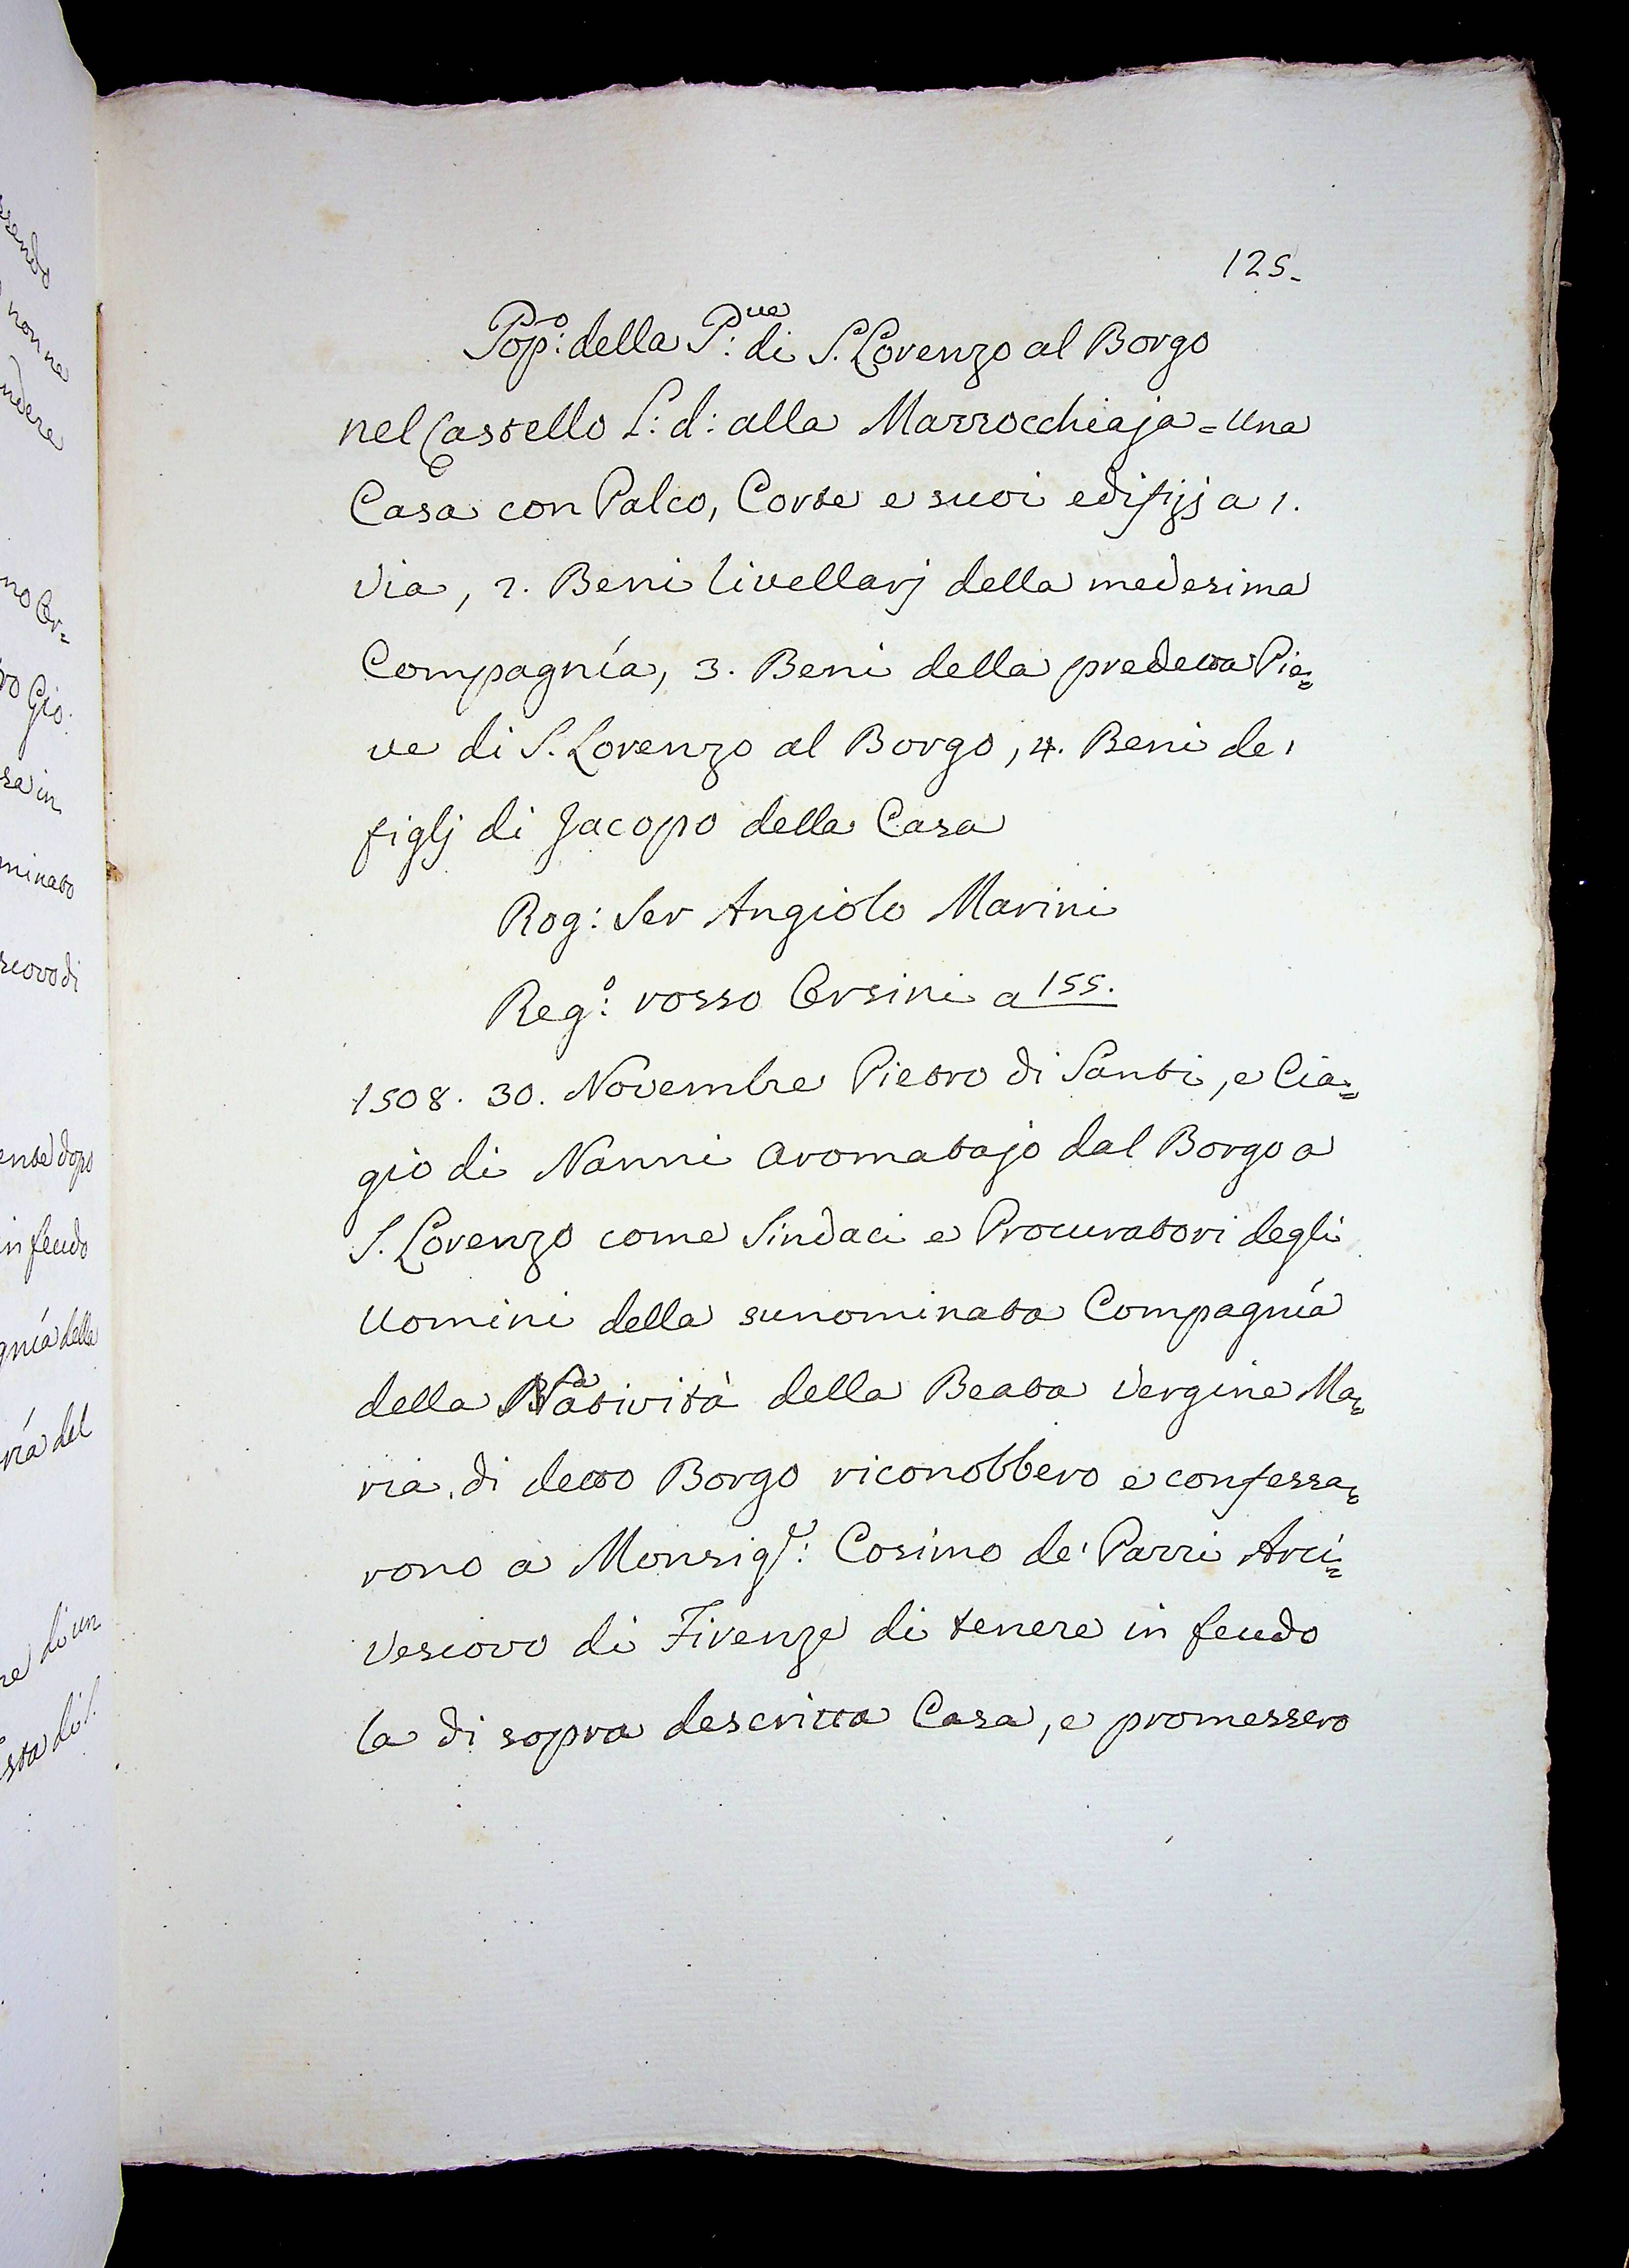 125.
Pop.º: della P.ve: di S. Lorenzo al Borgo
nel Castello L: d: alla Mazzocchiaja = Una
Casa con Palco, Corte e suoi edifizj a 1.
Via, 2. Beni livellarj della medesima
Compagnía, 3. Beni della predetta Pie=
ve di S. Lorenzo al Borgo, 4. Beni de'
figlj di Jacopo della Casa
Rog: Ser Angiolo Marini
Reg.º: rosso Orsini a 155.
1508. 30. Novembre Pietro di Santi, e Bia=
gio di Nanni aromatajo dal Borgo a
S. Lorenzo come Sindaci e Procuratori degli
Uomini della sunominata Compagnía
della Natività della Beata Vergine Ma=
ria di detto Borgo riconobbero e confessa=
rono a Monsig.r: Cosimo de' Pazzi Arci=
Vescovo di Firenze di tenere in feudo
la di sopra descritta Casa, e promessero